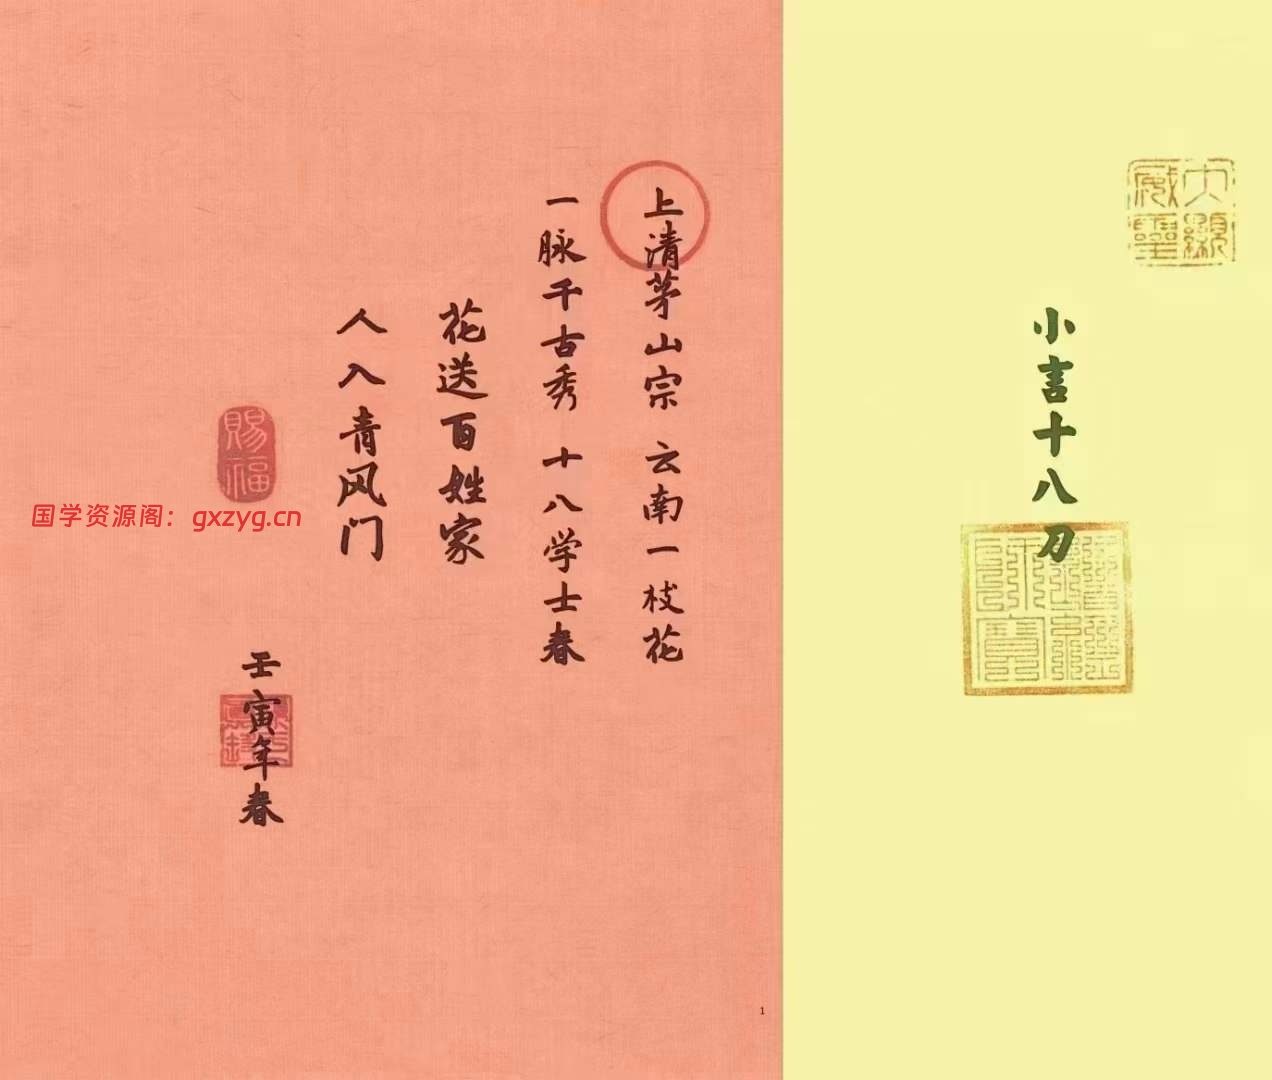 大顯威靈
小言十八刀
上清茅山宗 云南一枝花
一脉千古秀 十八学士春
花送百姓家
人入青风门
賜福
国学资源阁：gxzyg.cn
壬寅年春
1